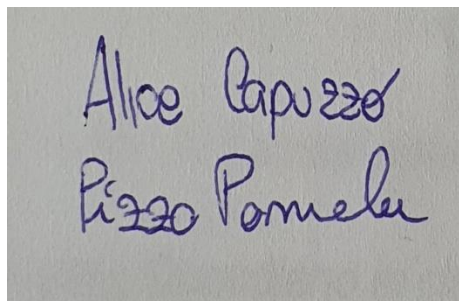 Alice Capuzzo
Pizzo Pamela